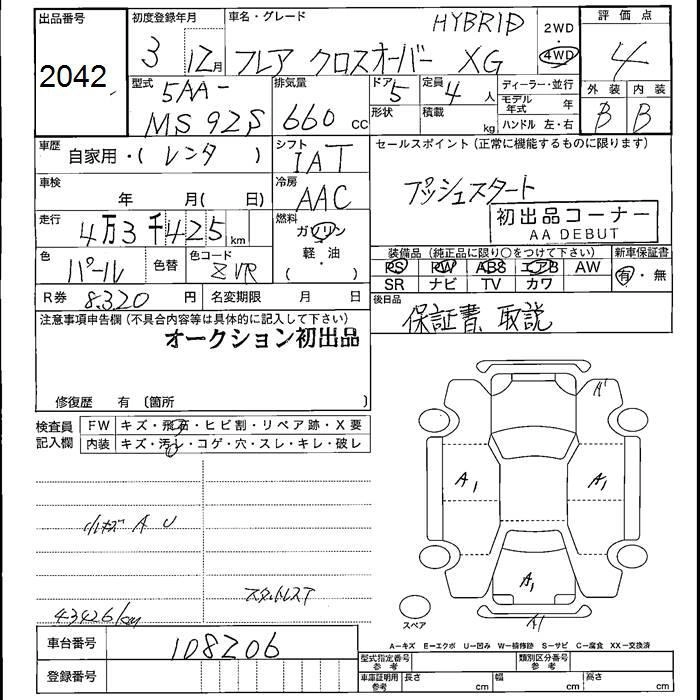 出品番号
2042
初度登録年月
3 12月
車名・グレード
HYBRID
フレア クロスオーバー XG
2WD
・
4WD
評価点
4
外装 内装
B B
型式
5AA-
MS92S
排気量
660 cc
ドア 5
形状
定員 4 人
積載 kg
ディーラー・並行
モデル年式 年
ハンドル 左・右
車歴
自家用・( レンタ )
シフト
IAT
セールスポイント (正常に機能するものに限ります)
プッシュスタート
初出品コーナー
AA DEBUT
車検
年 月( 日)
冷房
AAC
走行
4万3千425km
燃料
ガソリン
軽・油
( )
色
パール
色替
色コード
ZVR
装備品 (純正品に限り○をつけて下さい)
PS PW ABS エアB AW
SR ナビ TV カワ
新車保証書
有・無
R券 8320 円
名変期限 月 日
後日品
保証書 取説
注意事項申告欄 (不具合内容等は具体的に記入して下さい)
オークション初出品
修復歴 有 〔箇所 〕
検査員記入欄
FW キズ・飛石・ヒビ割・リペア跡・X要
内装 キズ・汚レ・コゲ・穴・スレ・キレ・破レ
小キズ A U
スタットレスT
43426km
A'
A1
A1
A1
A1
スペア
A−キズ E−エクボ U−凹み W−補修跡 S−サビ C−腐食 XX−交換済
車台番号
108206
登録番号
型式指定番号参考
類別区分番号参考
車庫証明用参考
長さ cm
幅 cm
高さ cm